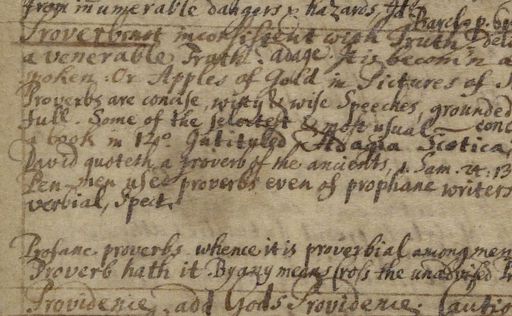 from innumerable dangers & hazards.
Barclay p.
Proverbs not inconsistent with Truth,
a venerable Truth: adage. It is becom'n a
spoken. Or Apples of Gold in Pictures of S
Proverbs are concise, witty & wise Speeches, grounded
full. Some of the selectest & most usual conc
a book in 12° Intituled, Adagia Scotica
David quoteth a proverb of the ancients, 1. Sam. 24: 13
Pen-men use proverbs even of prophane writers
verbial, Spect.
Profane proverbs whence it is proverbial among men
Proverb hath it By any means cross the unadvised
Providence, add Gods Providence: Cautio